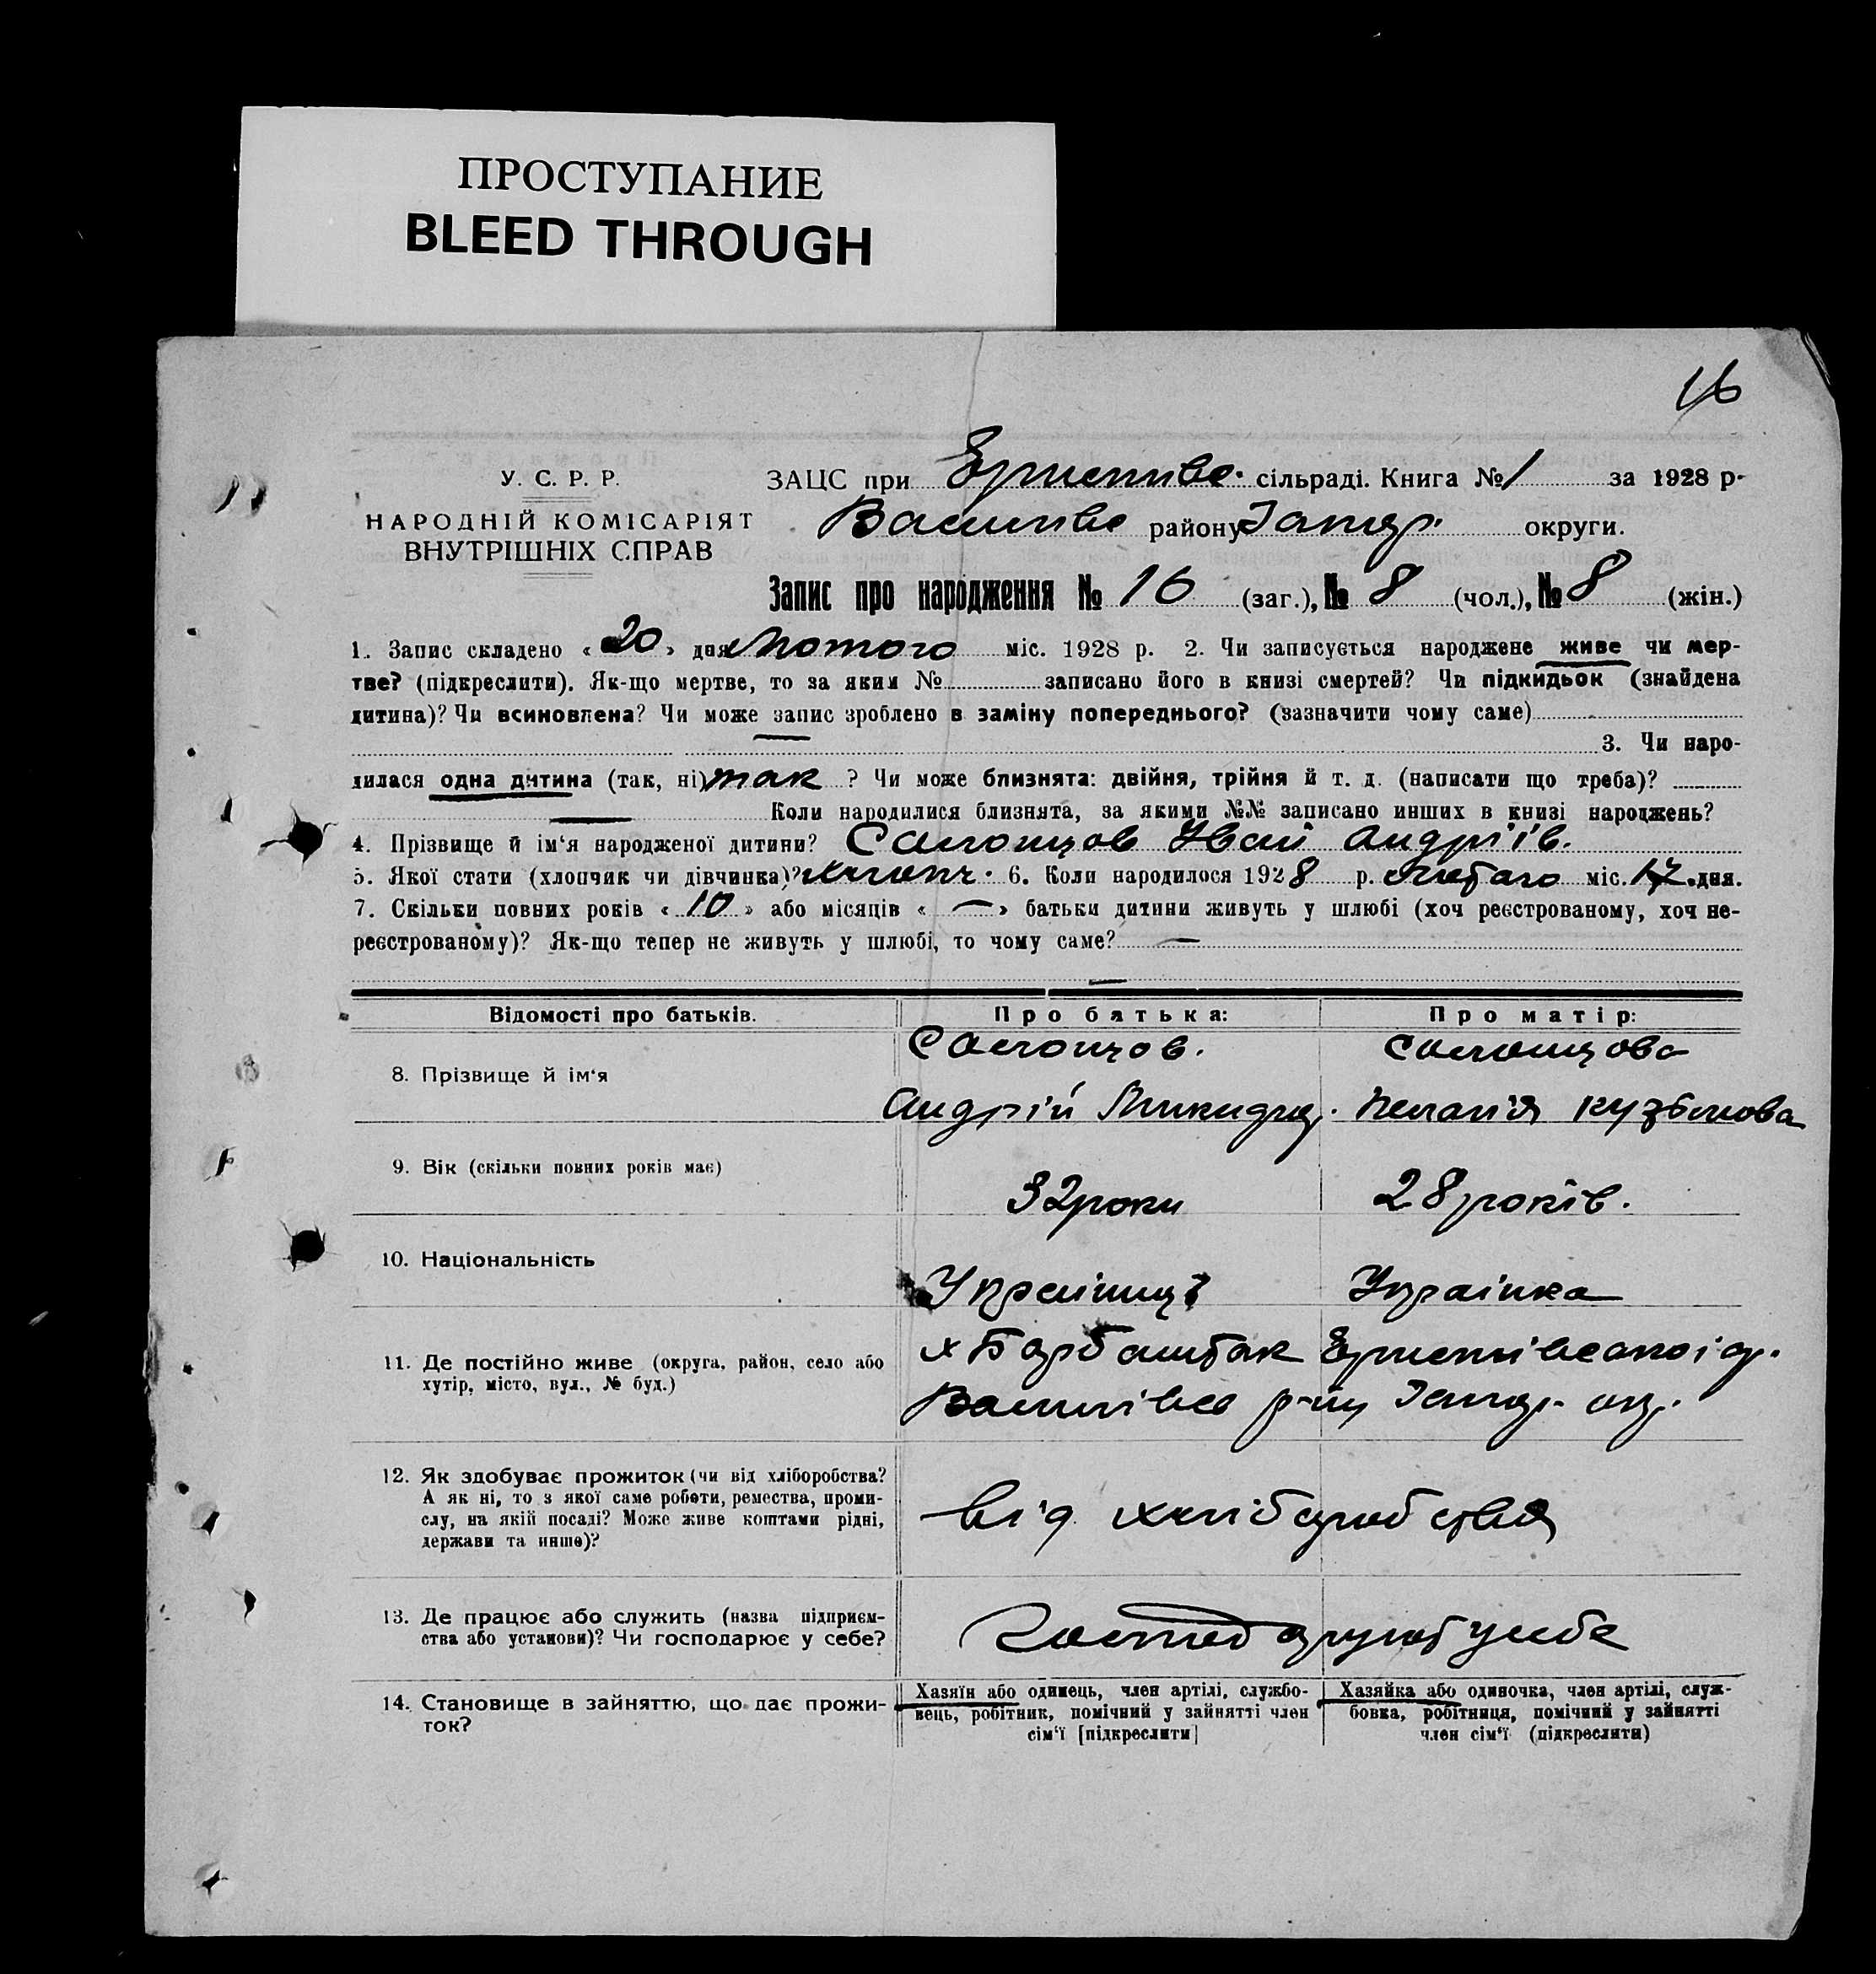 ПРОСТУПАНИЕ
BLEED THROUGH
16
У. С. Р. Р.
НАРОДНІЙ КОМІСАРІЯТ
ВНУТРІШНІХ СПРАВ
ЗАЦС при сільраді. Книга № 1 за 1928 р.
району Запор. округи.
Запис про народження № 16 (заг.), № 8 (чол.), № 8 (жін.)
1. Запис складено « 20 » дня Лютого міс. 1928 р. 2. Чи записується народжене живе чи мер-
тве? (підкреслити). Як-що мертве, то за яким № записано його в книзі смертей? Чи підкидьок (знайдена
дитина)? Чи всиновлена? Чи може запис зроблено в заміну попереднього? (зазначити чому саме)
3. Чи наро-
дилася одна дитина (так, ні) так ? Чи може близнята: двійня, трійня й т. д. (написати що треба)?
Коли народилися близнята, за якими №№ записано инших в книзі народжень?
4. Прізвище й ім‘я народженої дитини? Солонцов Іван Андріїв.
5. Якої стати (хлопчик чи дівчинка)? хлопч. 6. Коли народилося 1928 р. лютого міс. 17 дня.
7. Скільки повних років « 10 » або місяців « — » батьки дитини живуть у шлюбі (хоч реєстрованому, хоч не-
реєстрованому)? Як-що тепер не живуть у шлюбі, то чому саме? —
—
Відомості про батьків. Про батька: Про матір:
8. Прізвище й ім‘я
Солонцов. Солонцова
Андрій Микидов. Пелагія Кузьмова
9. Вік (скільки повних років має)
32 роки 28 років.
10. Національність
Українець Українка
11. Де постійно живе (округа, район, село або
хутір, місто, вул., № буд.)
Василівсо р-ну Запор. окр.
12. Як здобуває прожиток (чи від хліборобства?
А як ні, то з якої саме роботи, ремества, проми-
слу, на якій посаді? Може живе коштами рідні,
держави та инше)?
Від хліборобства
13. Де працює або служить (назва підприєм-
ства або установи)? Чи господарює у себе?
у себе
14. Становище в зайняттю, що дає прожи-
ток?
Хазяїн або одинець, член артілі, службо-
вець, робітник, помічний у зайнятті член
сім‘ї [підкреслити]
Хазяйка або одиночка, член артілі, служ-
бовка, робітниця, помічний у зайнятті
член сім‘ї (підкреслити)